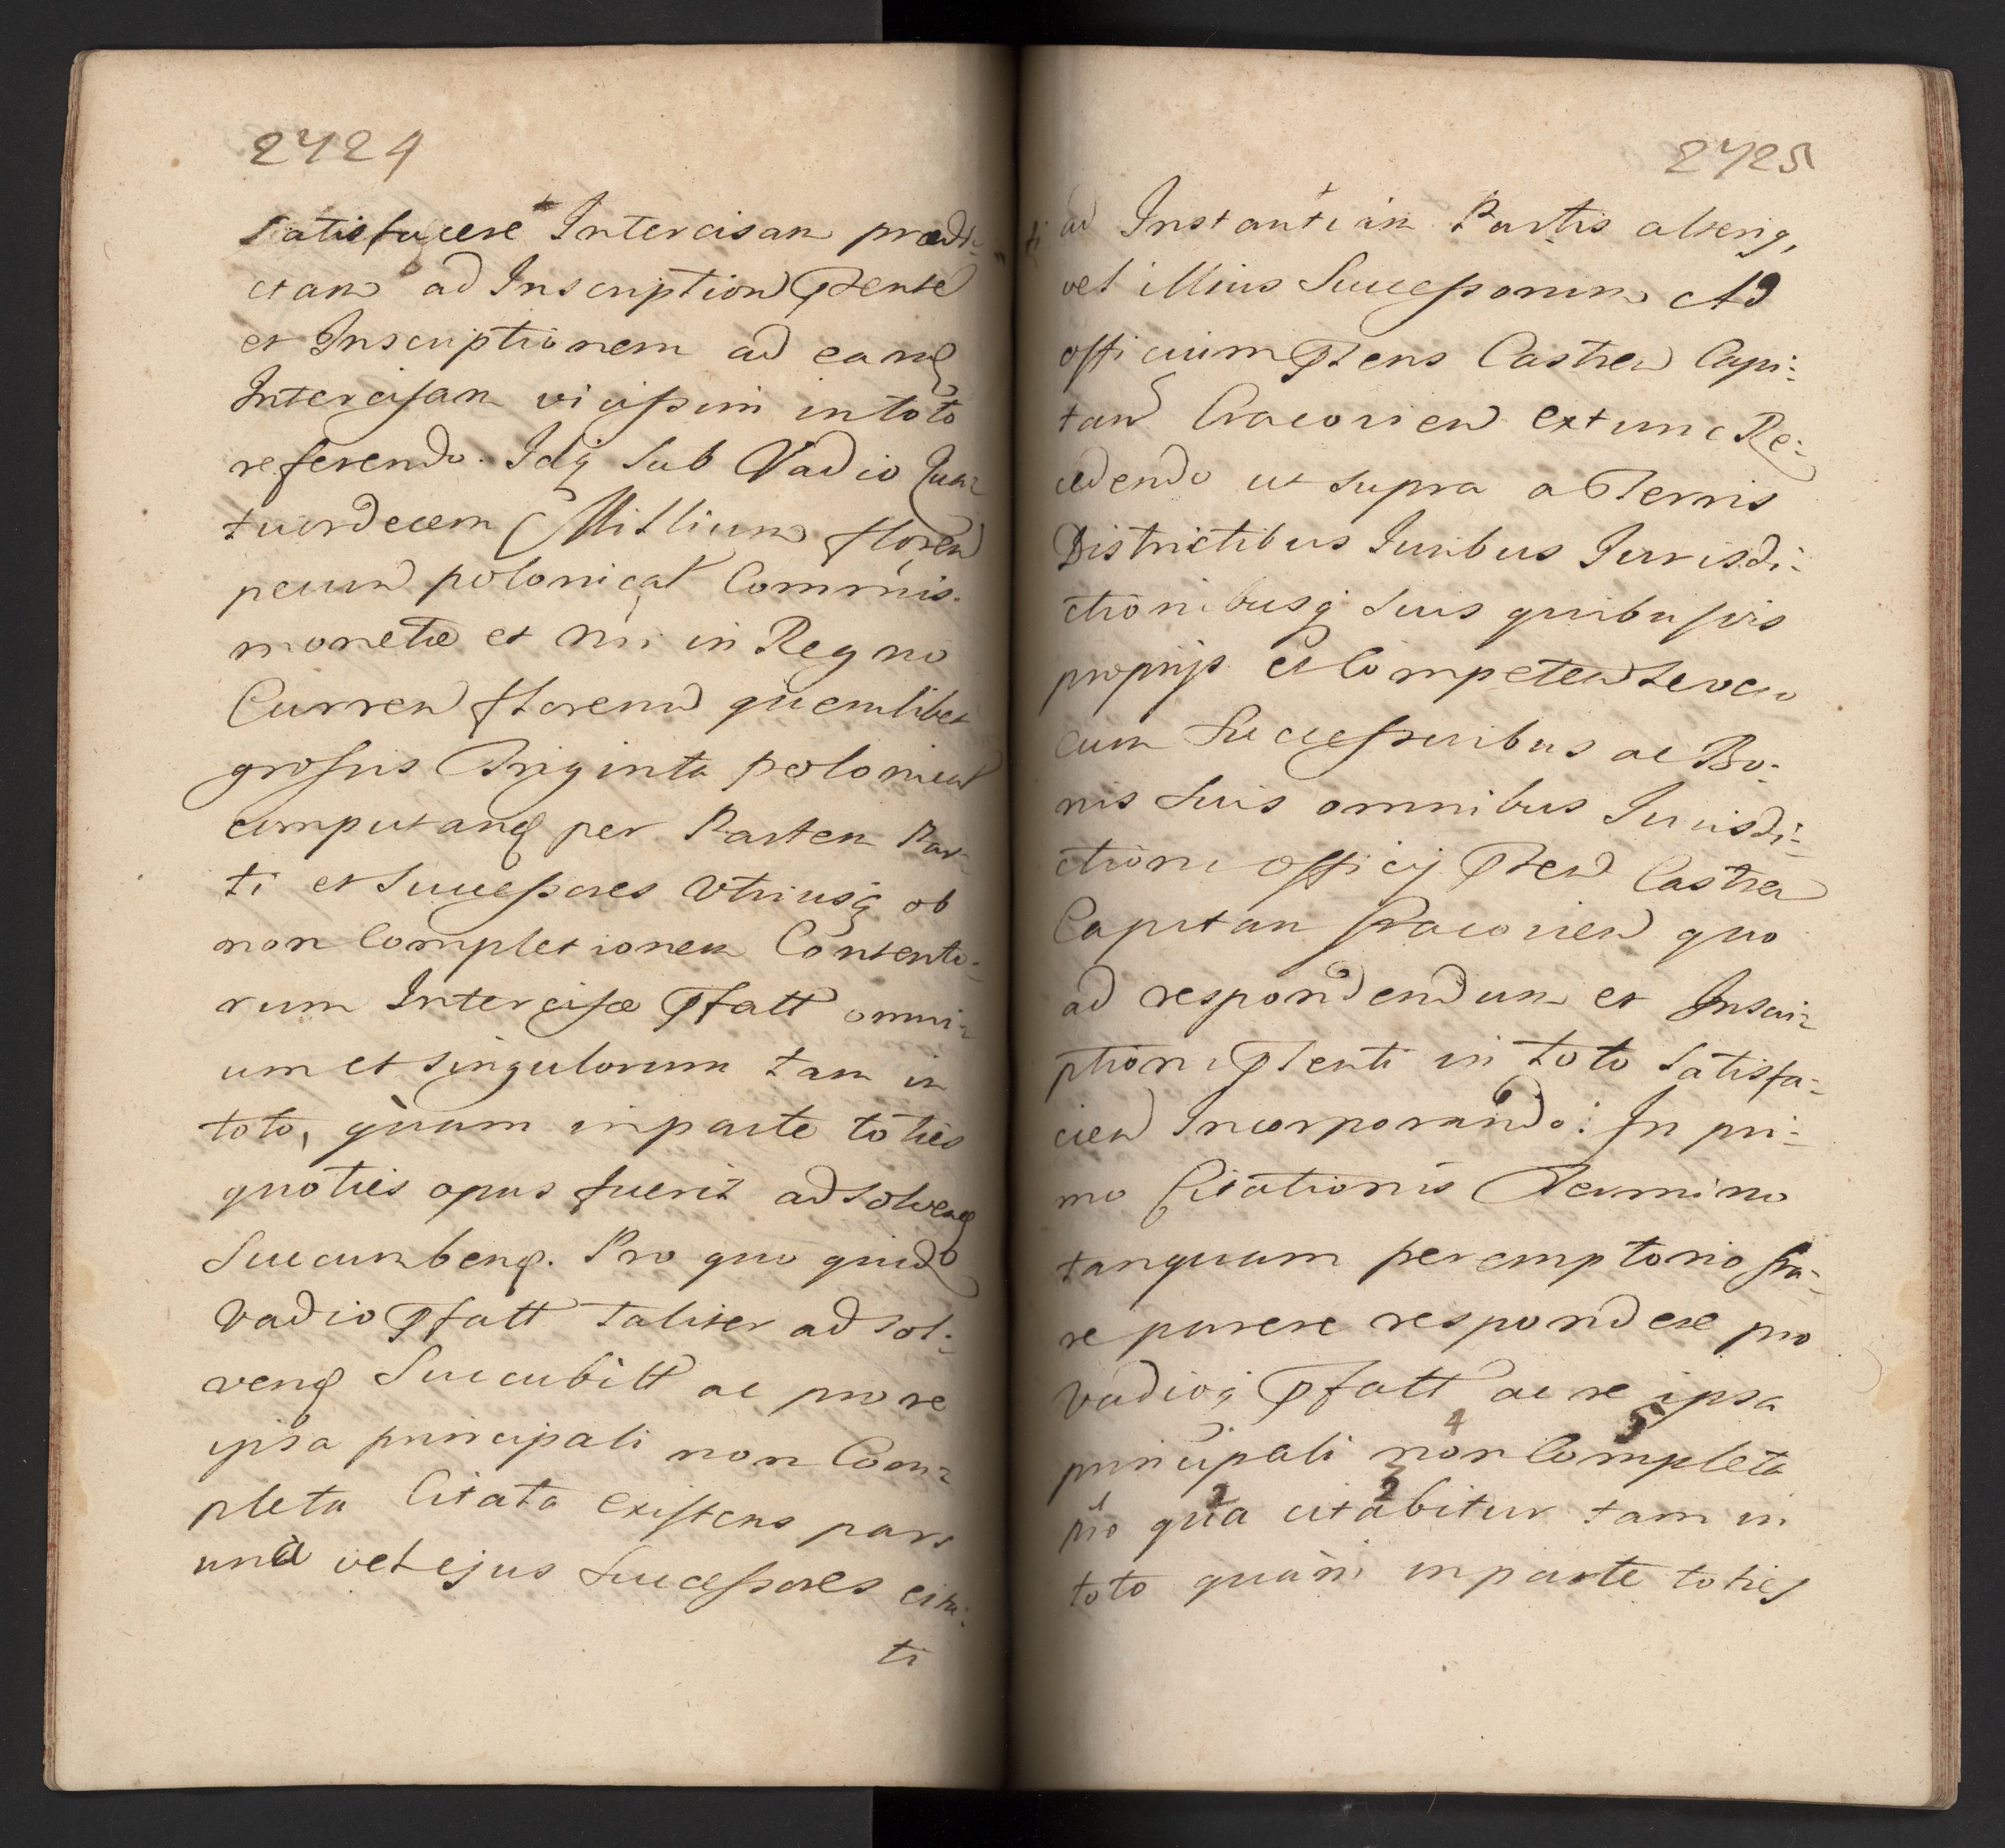 2424
satisfacere Intercisam prædi-
ctam ad Inscription Pntem
et Inscriptionem ad eand
Intercisam vicissim in toto
referendo. Idq sub Vadio Qua-
tuordecem Millium floren
pecun polonical Commnis
monetæ et nn in Regno
Curren florenu quemlibet
grossis Triginta polonical
computand per Partem Par-
ti et Successores Utriusq ob
non Completionem Contento-
rum Intercisæ Pfatt omni-
um et singulorum tam in
toto, quam in parte toties
quoties opus fuerit adsolvend
Succumbend. Pro quo quid
Vadio Pfatt taliter adsol-
vend Succubitt ac pro re
ipsa principali non Com-
pleta Citata existens pars
una vel ejus Successores cita-
ti
2425
ti ad Instantiam Partis alterig,
vel illius Successorum Ad
officium Pntens Castren Capi-
tan Cracovien extunc Re-
cedendo ut supra a Terris
Districtibus Juribus Jurisdi-
ctionibusq suis quibusvis
proprijs et Competen seveu
cum Successoribus ac Bo-
nis suis omnibus Jurisdi-
ctioni officij Pnten Castren
Capitan Cracovien quo
ad respondendum et Inscri-
ptioni Pnsenti in toto satisfa-
cien Incorporando: In pri-
mo Citationis Termino
tanquam peremptorio sta-
re parere respondere pro
vadioq Pfatt ac re ipsa
principali non Completa
pro qua citabitur tam in
toto quam in parte toties